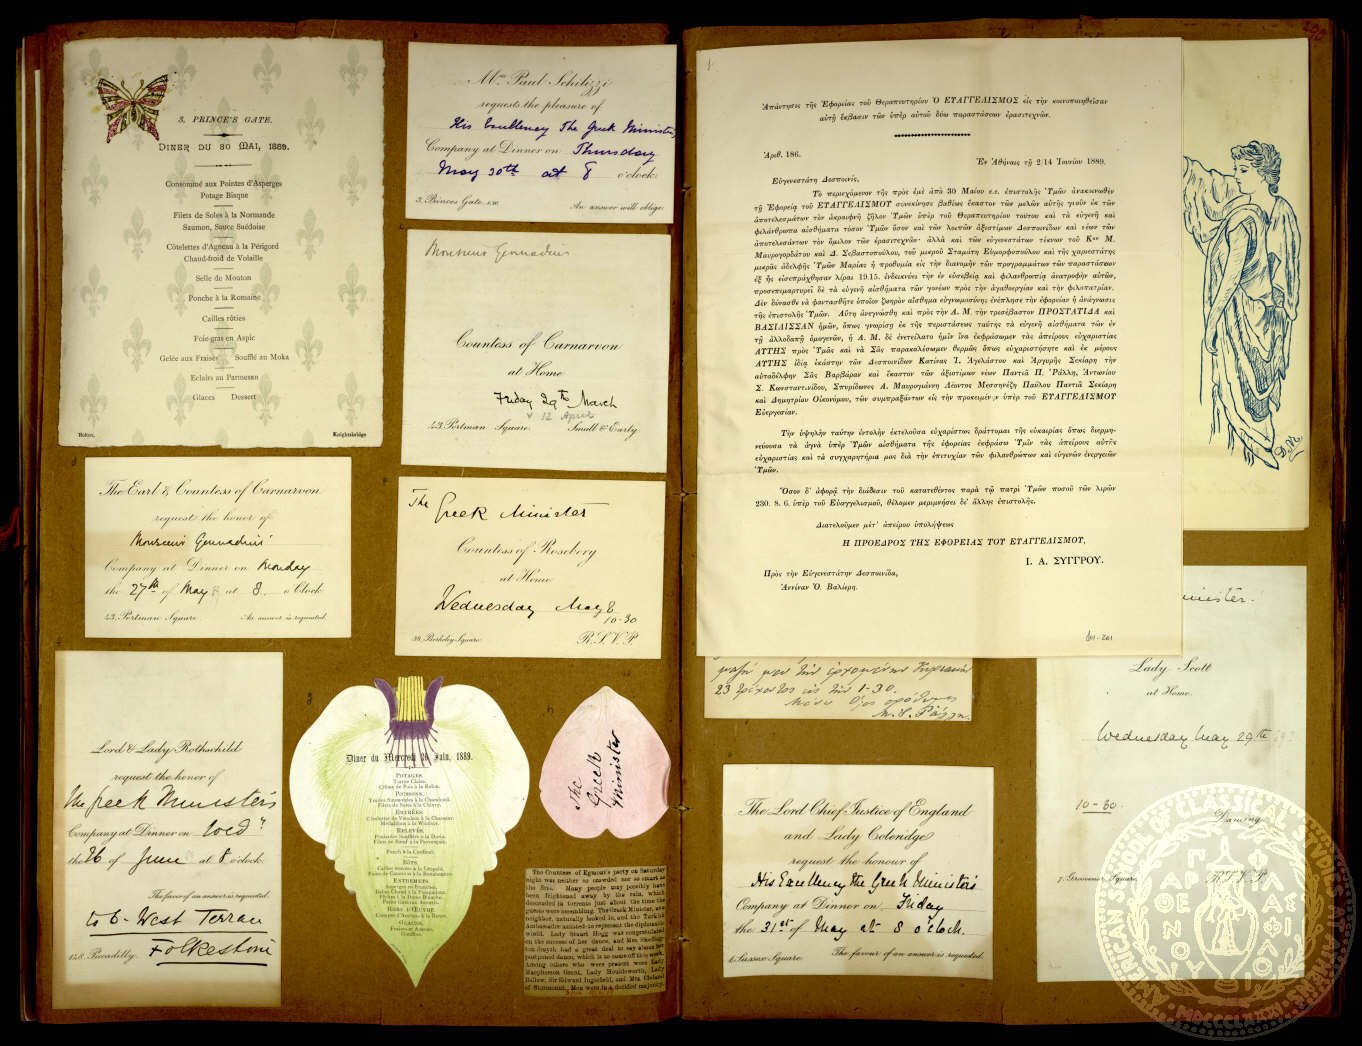 3, PRINCE'S GATE.
DINER DU 30 MAI, 1889.
Consommé aux Pointes d'Asperges
Potage Bisque
Filets de Soles à la Normande
Saumon, Sauce Suédoise
Côtelettes d'Agneau à la Périgord
Chaud-froid de Volaille
Selle de Mouton
Ponche à la Romaine
Cailles rôties
Foie-gras en Aspic
Gelée aux Fraises Soufflé au Moka
Eclairs au Parmesan
Glaces Dessert
Bolton, Knightsbridge
Mrs Paul Schilizzi
requests the pleasure of
His Excellency The Greek Minister's
Company at Dinner on Thursday
May 30th at 8 o'clock
3, Princes Gate, S.W. An answer will oblige.
Monsieur Gennadius
Countess of Carnarvon
at Home
Friday 29th March
& 12 April
43, Portman Square. Small & Early
The Earl & Countess of Carnarvon
request the honor of
Monsieur Gennadius'
Company at Dinner on Monday
the 27th of May at 8. o'Clock
43, Portman Square. An answer is requested.
The Greek Minister
Countess of Rosebery
at Home
Wednesday May 8
10-30
38, Berkeley Square. R.S.V.P.
Lord & Lady Rothschild
request the honor of
The Greek Minister's
Company at Dinner on Wedy
the 26 of June at 8 o'clock.
The favor of an answer is requested.
to 6 - West Terrace
Folkestone
148, Piccadilly.
Diner du Mercredi 26 Juin, 1889.
POTAGES.
Tortue Claire.
POISSONS.
ENTRÉES.
RELEVÉS.
Punch à la Cardinal.
RÔTS.
ENTREMETS.
GLACES.
The
Greek
Minister
The Countess of Egmont's party on Saturday
night was neither so crowded nor so smart as
the first. Many people may possibly have
been frightened away by the rain, which
descended in torrents just about the time the
guests were assembling. The Greek Minister, as a
neighbor, naturally looked in, and the Turkish
Ambassador assisted to represent the diplomatic
world. Lady Stuart Hogg was congratulated
on the success of her dance, and Mrs.
had a great deal to say about her
postponed dance, which is to come off this week.
Among others who were present were Lady
Macpherson Grant, Lady Houldsworth, Lady
Sir Edward Inglefield, and Mrs. Cleland
of Stonmount. Men were in a decided majority.
Ἀπάντησις τῆς Ἐφορείας τοῦ Θεραπευτηρίου Ὁ ΕΥΑΓΓΕΛΙΣΜΟΣ εἰς τὴν κοινοποιηθεῖσαν
αὐτῇ ἔκβασιν τῶν ὑπὲρ αὐτοῦ δύω παραστάσεων ἐρασιτεχνῶν.
Ἀριθ. 186. Ἐν Ἀθήναις τῇ 2/14 Ἰουνίου 1889.
Εὐγενεστάτη Δεσποινίς,
Τὸ περιεχόμενον τῆς πρὸς ἐμὲ ἀπὸ 30 Μαΐου ε.ε. ἐπιστολῆς Ὑμῶν ἀνακοινωθὲν
τῇ Ἐφορείᾳ τοῦ ΕΥΑΓΓΕΛΙΣΜΟΥ συνεκίνησε βαθέως ἕκαστον τῶν μελῶν αὐτῆς γιοῦν ἐκ τῶν
ἀποτελεσμάτων τὸν ἀκραιφνῆ ζῆλον Ὑμῶν ὑπὲρ τοῦ Θεραπευτηρίου τούτου καὶ τὰ εὐγενῆ καὶ
φιλάνθρωπα αἰσθήματα τόσον Ὑμῶν ὅσον καὶ τῶν λοιπῶν ἀξιοτίμων Δεσποινίδων καὶ νέων τῶν
ἀποτελεσάντων τὸν ὅμιλον τῶν ἐρασιτεχνῶν· ἀλλὰ καὶ τῶν εὐγενεστάτων τέκνων τοῦ Κου Μ.
Μαυρογορδάτου καὶ Δ. Σεβαστοπούλου, τοῦ μικροῦ Σταμάτη Εὐμορφοπούλου καὶ τῆς χαριεστάτης
μικρᾶς ἀδελφῆς Ὑμῶν Μαρίας ἡ προθυμία εἰς τὴν διανομὴν τῶν προγραμμάτων τῶν παραστάσεων
ἐξ ἧς εἰσεπράχθησαν λίραι 19.15. ἐνδεικνύει τὴν ἐν εὐσεβείᾳ καὶ φιλανθρωπίᾳ ἀνατροφὴν αὐτῶν,
προσεπιμαρτυρεῖ δὲ τὰ εὐγενῆ αἰσθήματα τῶν γονέων πρὸς τὴν ἀγαθοεργίαν καὶ τὴν φιλοπατρίαν.
Δὲν δύνασθε νὰ φαντασθῆτε ὁποῖον ζωηρὸν αἴσθημα εὐγνωμοσύνης ἐνέπλησε τὴν ἐφορείαν ἡ ἀνάγνωσις
τῆς ἐπιστολῆς Ὑμῶν. Αὕτη ἀνεγνώσθη καὶ πρὸς τὴν Α. Μ. τὴν τρισέβαστον ΠΡΟΣΤΑΤΙΔΑ καὶ
ΒΑΣΙΛΙΣΣΑΝ ἡμῶν, ὅπως γνωρίσῃ ἐκ τῆς περιστάσεως ταύτης τὰ εὐγενῆ αἰσθήματα τῶν ἐν
τῇ ἀλλοδαπῇ ὁμογενῶν, ἡ Α. Μ. δὲ ἐνετείλατο ἡμῖν ἵνα ἐκφράσωμεν τὰς ἀπείρους εὐχαριστίας
ΑΥΤΗΣ πρὸς Ὑμᾶς καὶ νὰ Σᾶς παρακαλέσωμεν θερμῶς ὅπως εὐχαριστήσητε καὶ ἐκ μέρους
ΑΥΤΗΣ ἰδίᾳ ἑκάστην τῶν Δεσποινίδων Κατίνας Ἰ. Ἀγελάστου καὶ Ἀργυρῆς Σεκίαρη τὴν
αὐταδέλφην Σᾶς Βαρβάραν καὶ ἕκαστον τῶν ἀξιοτίμων νέων Παντιᾶ Π. Ῥάλλη, Ἀντωνίου
Σ. Κωνσταντινίδου, Σπυρίδωνος Α. Μαυρογιάννη Λέοντος Μεσσηνέζη Παύλου Παντιᾶ Σεκίαρη
καὶ Δημητρίου Οἰκονόμου, τῶν συμπραξάντων εἰς τὴν προκειμένην ὑπὲρ τοῦ ΕΥΑΓΓΕΛΙΣΜΟΥ
Εὐεργεσίαν.
Τὴν ὑψηλὴν ταύτην ἐντολὴν ἐκτελοῦσα εὐχαρίστως δράττομαι τῆς εὐκαιρίας ὅπως διερμη-
νεύουσα τὰ ἁγνὰ ὑπὲρ Ὑμῶν αἰσθήματα τῆς ἐφορείας ἐκφράσω Ὑμῖν τὰς ἀπείρους αὐτῆς
εὐχαριστίας καὶ τὰ συγχαρητήρια μας διὰ τὴν ἐπιτυχίαν τῶν φιλανθρώπων καὶ εὐγενῶν ἐνεργειῶν
Ὑμῶν.
Ὅσον δ' ἀφορᾷ τὴν διάθεσιν τοῦ κατατεθέντος παρὰ τῷ πατρὶ Ὑμῶν ποσοῦ τῶν λιρῶν
230. 8. 6. ὑπὲρ τοῦ Εὐαγγελισμοῦ, θέλομεν μεριμνήσει δι' ἄλλης ἐπιστολῆς.
Διατελοῦμεν μετ' ἀπείρου ὑπολήψεως
Η ΠΡΟΕΔΡΟΣ ΤΗΣ ΕΦΟΡΕΙΑΣ ΤΟΥ ΕΥΑΓΓΕΛΙΣΜΟΥ,
Ι. Α. ΣΥΓΓΡΟΥ.
Πρὸς τὴν Εὐγενεστάτην Δεσποινίδα,
Ἀννίναν Ὀ. Βαλιέρη.
23
1-30.
The Lord Chief Justice of England
and Lady Coleridge
request the honour of
His Excellency the Greek Minister's
Company at Dinner on Friday
the 31st of May at 8 o'clock.
1, Sussex Square. The favour of an answer is requested.
Minister.
Lady Scott
at Home.
Wednesday May 29th
10-30. Dancing
7, Grosvenor Square. R.S.V.P.
AMERICAN SCHOOL OF CLASSICAL STUDIES AT ATHENS
ΠΑΡΘΕΝΟΥ ΦΙΛΑΣ
MDCCCLXXXI